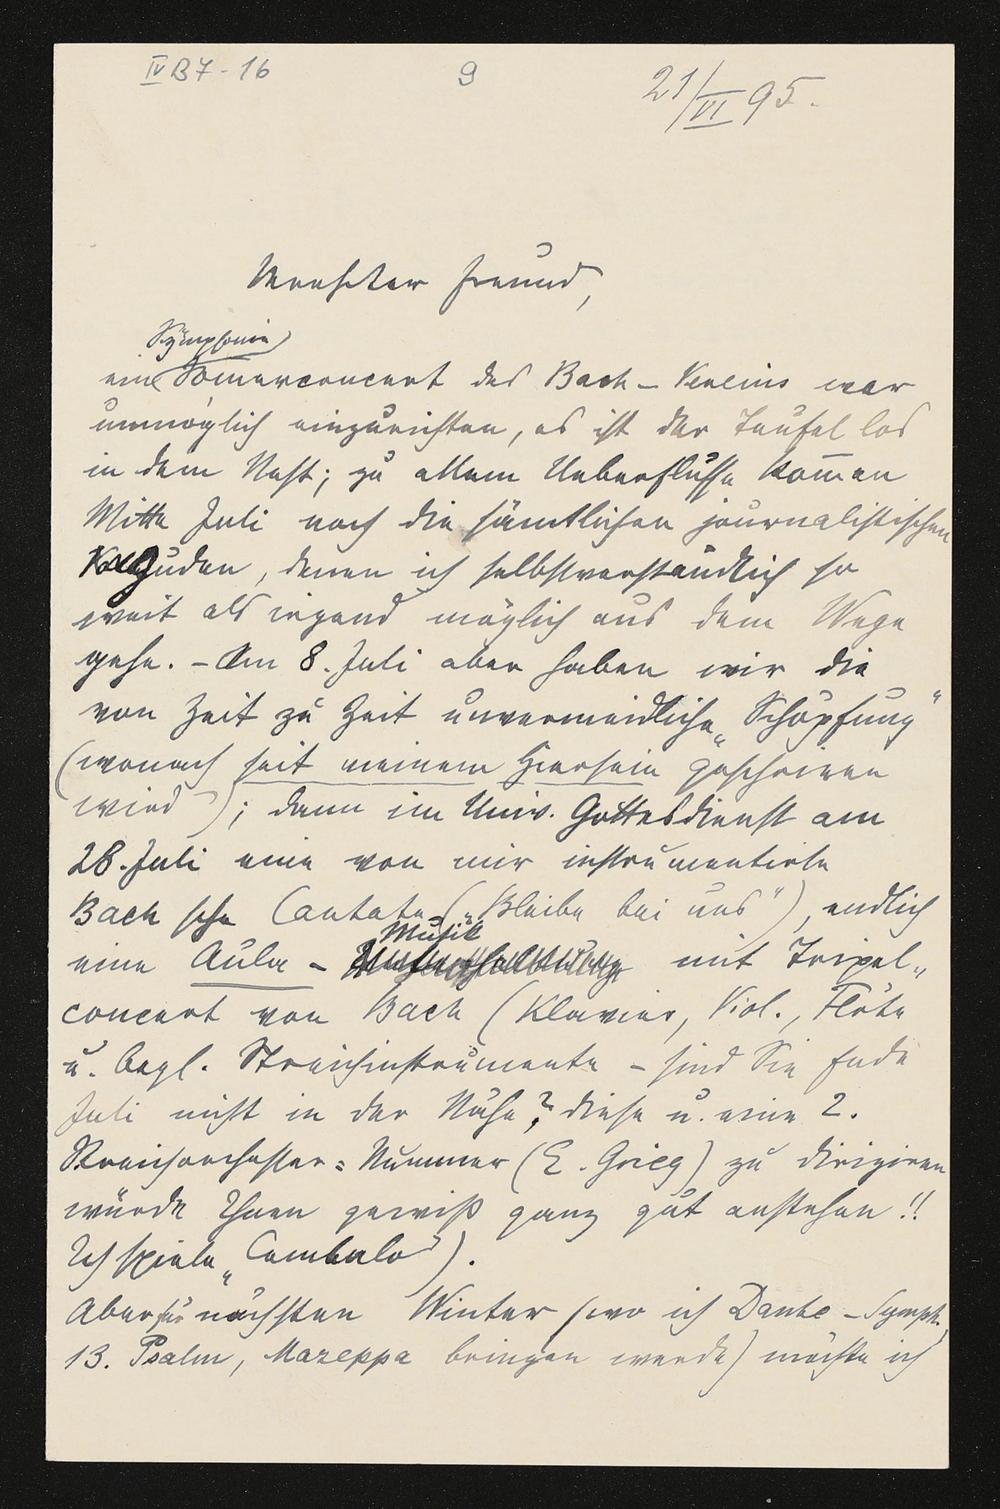 IV B 7 - 16
9
21/VI 95.
Verehrter Freund,
Symphonie
ein Sommerconcert des Bach-Vereins war
unmöglich einzurichten, es ist der Teufel los
in dem Nest; zu allem Ueberflusse kommen
Mitte Juli noch die sämtlichen journalistischen
Juden, denen ich selbstverständlich so
weit als irgend möglich aus dem Wege
gehe. - Am 8. Juli aber haben wir die
von Zeit zu Zeit unvermeidliche „Schöpfung"
(wonach seit meinem Hiersein geschrieen
wird); dann im Univ. Gottesdienst am
28. Juli eine von mir instrumentirte
Bach'sche Cantate („Bleibe bei uns"), endlich
Musik
eine Aula - mit Tripel-
concert von Bach (Klavier, Viol., Flöte
u. begl. Streichinstrumente - sind Sie Ende
Juli nicht in der Nähe? diese u. eine 2.
Streichorchester-Nummer (E. Grieg) zu dirigiren
würde Ihnen gewiß ganz gut anstehen!!
Ich spiele „Cembalo").
Aber für nächsten Winter (wo ich Dante-Symph.
13. Psalm, Mazeppa bringen werde) möchte ich